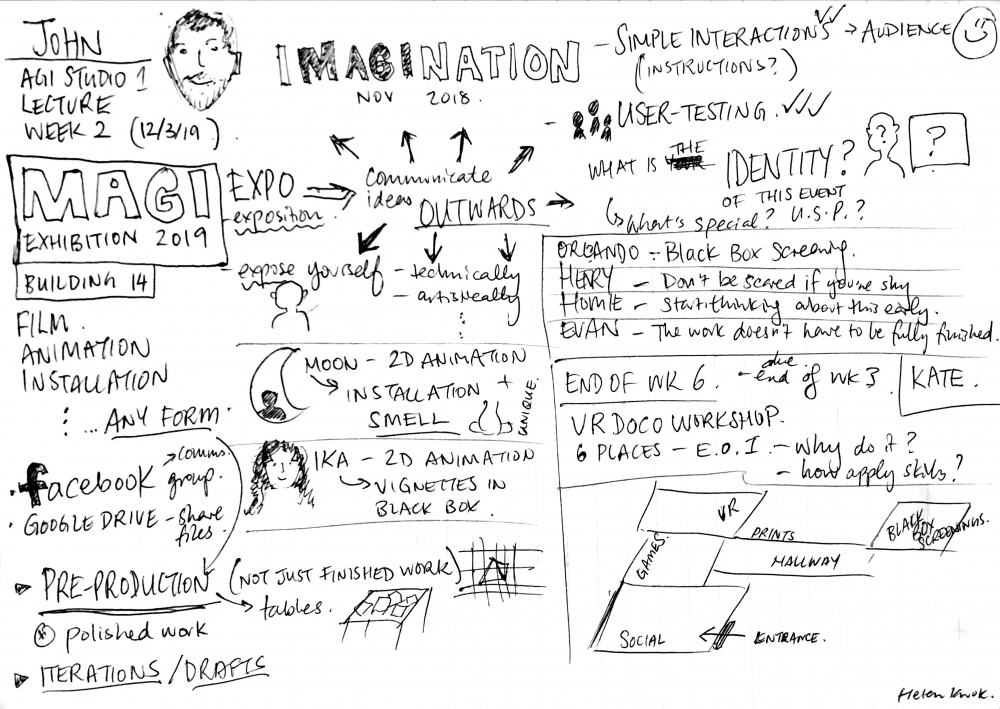 JOHN
AGI STUDIO 1
LECTURE
WEEK 2 (12/3/19)
IMAGINATION
NOV 2018.
- SIMPLE INTERACTIONS → AUDIENCE
(INSTRUCTIONS?)
- USER-TESTING.
WHAT IS THE IDENTITY?
OF THIS EVENT
What's special? U.S.P.?
?
?
MAGI
EXHIBITION 2019
BUILDING 14
EXPO
exposition.
communicate
ideas OUTWARDS
expose yourself - technically
- artistically
FILM.
ANIMATION
INSTALLATION
... ANY FORM.
facebook → comms. group.
• GOOGLE DRIVE - share files.
PRE-PRODUCTION (NOT JUST FINISHED WORK)
→ tables.
polished work
ITERATIONS / DRAFTS
MOON - 2D ANIMATION
→ INSTALLATION +
SMELL
UNIQUE.
IKA - 2D ANIMATION
→ VIGNETTES IN
BLACK BOX.
ORLANDO - Black Box Screening.
HENRY - Don't be scared if you're shy
HOMIE - Start thinking about this early.
EVAN - The work doesn't have to be fully finished.
END OF WK 6. - due end of wk 3
KATE.
VR DOCO WORKSHOP.
6 PLACES - E.O.I. - Why do it?
- how apply skills?
VR
PRINTS
BLACK BOX SCREENINGS.
GAMES
HALLWAY
SOCIAL ← ENTRANCE.
Helen Kwok.